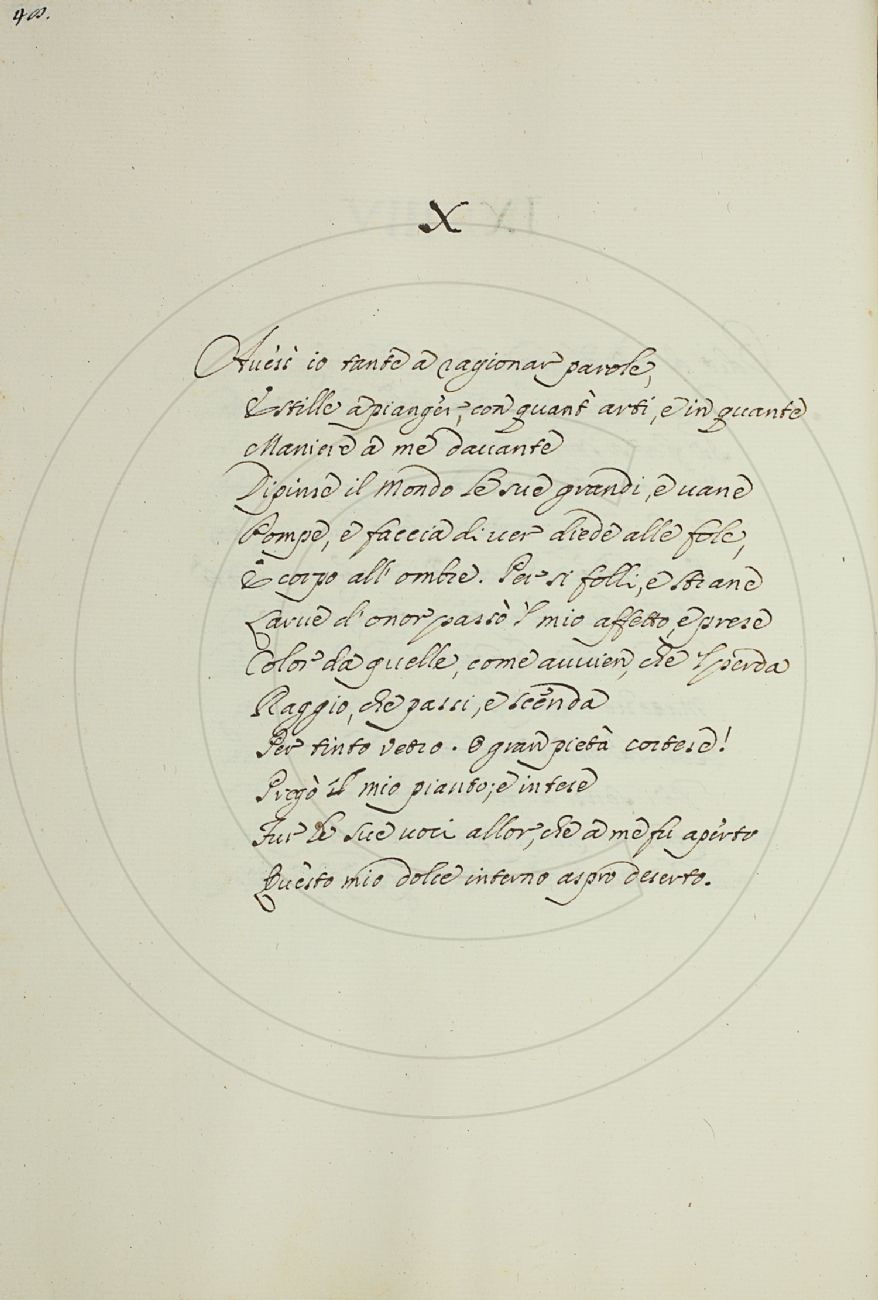 48.
X
Avèss' io tante a ragionar parole,
E stille a pianger, con quant' arti, e in quante
Maniere a me davante
Dipinse il Mondo le sue grandi, e vane
Pompe, e faccia di ver diede alle fole,
E corpo all' ombre. Per si folli, e strane
Larve d' onor passò 'l mio affetto, e prese
Color da quelle, come avvien, che 'l prenda
Raggio, che passi, e scenda
Per tinto vetro. O gran pietà cortese!
Pregò il mio pianto; e intese
Fur le sue voci allor, che a me fu aperto
Questo mio dolce interno aspro deserto.